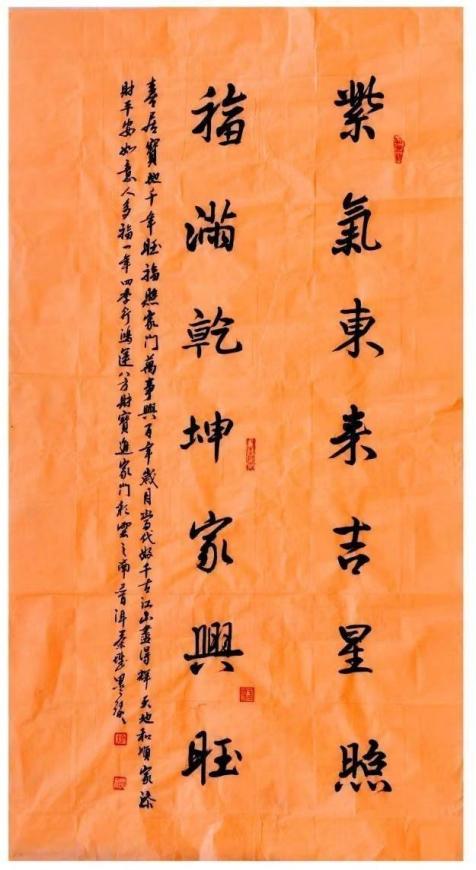 紫氣東来吉星照
福滿乾坤家興旺
喜居寶地千年旺福照家门萬事興百年歲月當代好千古江山盡得輝天地和順家添
財平安如意人多福一年四季行鴻運八方財寶進家门於雲之南